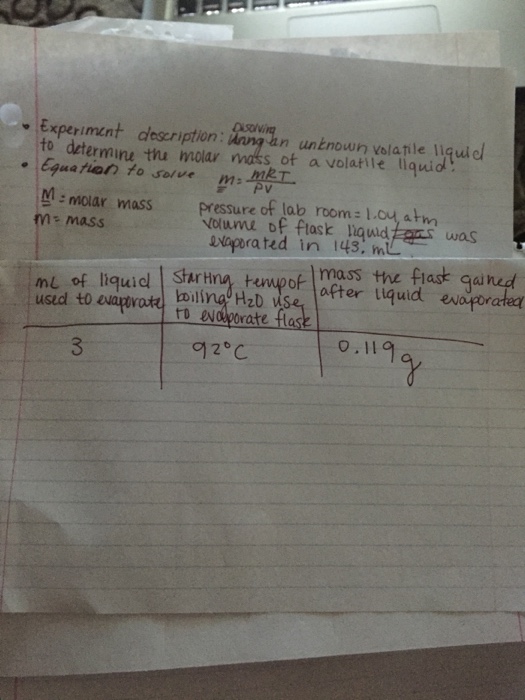 • Experiment description: Disolving an unknown volatile liquid
to determine the molar mass of a volatile liquid.
• Equation to solve M = mRT/PV
M = molar mass
m = mass
pressure of lab room = 1.04 atm
volume of flask liquid was
evaporated in 143. mL
mL of liquid used to evaporate | Starting temp of boiling H2O use to evaporate flask | mass the flask gained after liquid evaporated
3 | 92°C | 0.119g